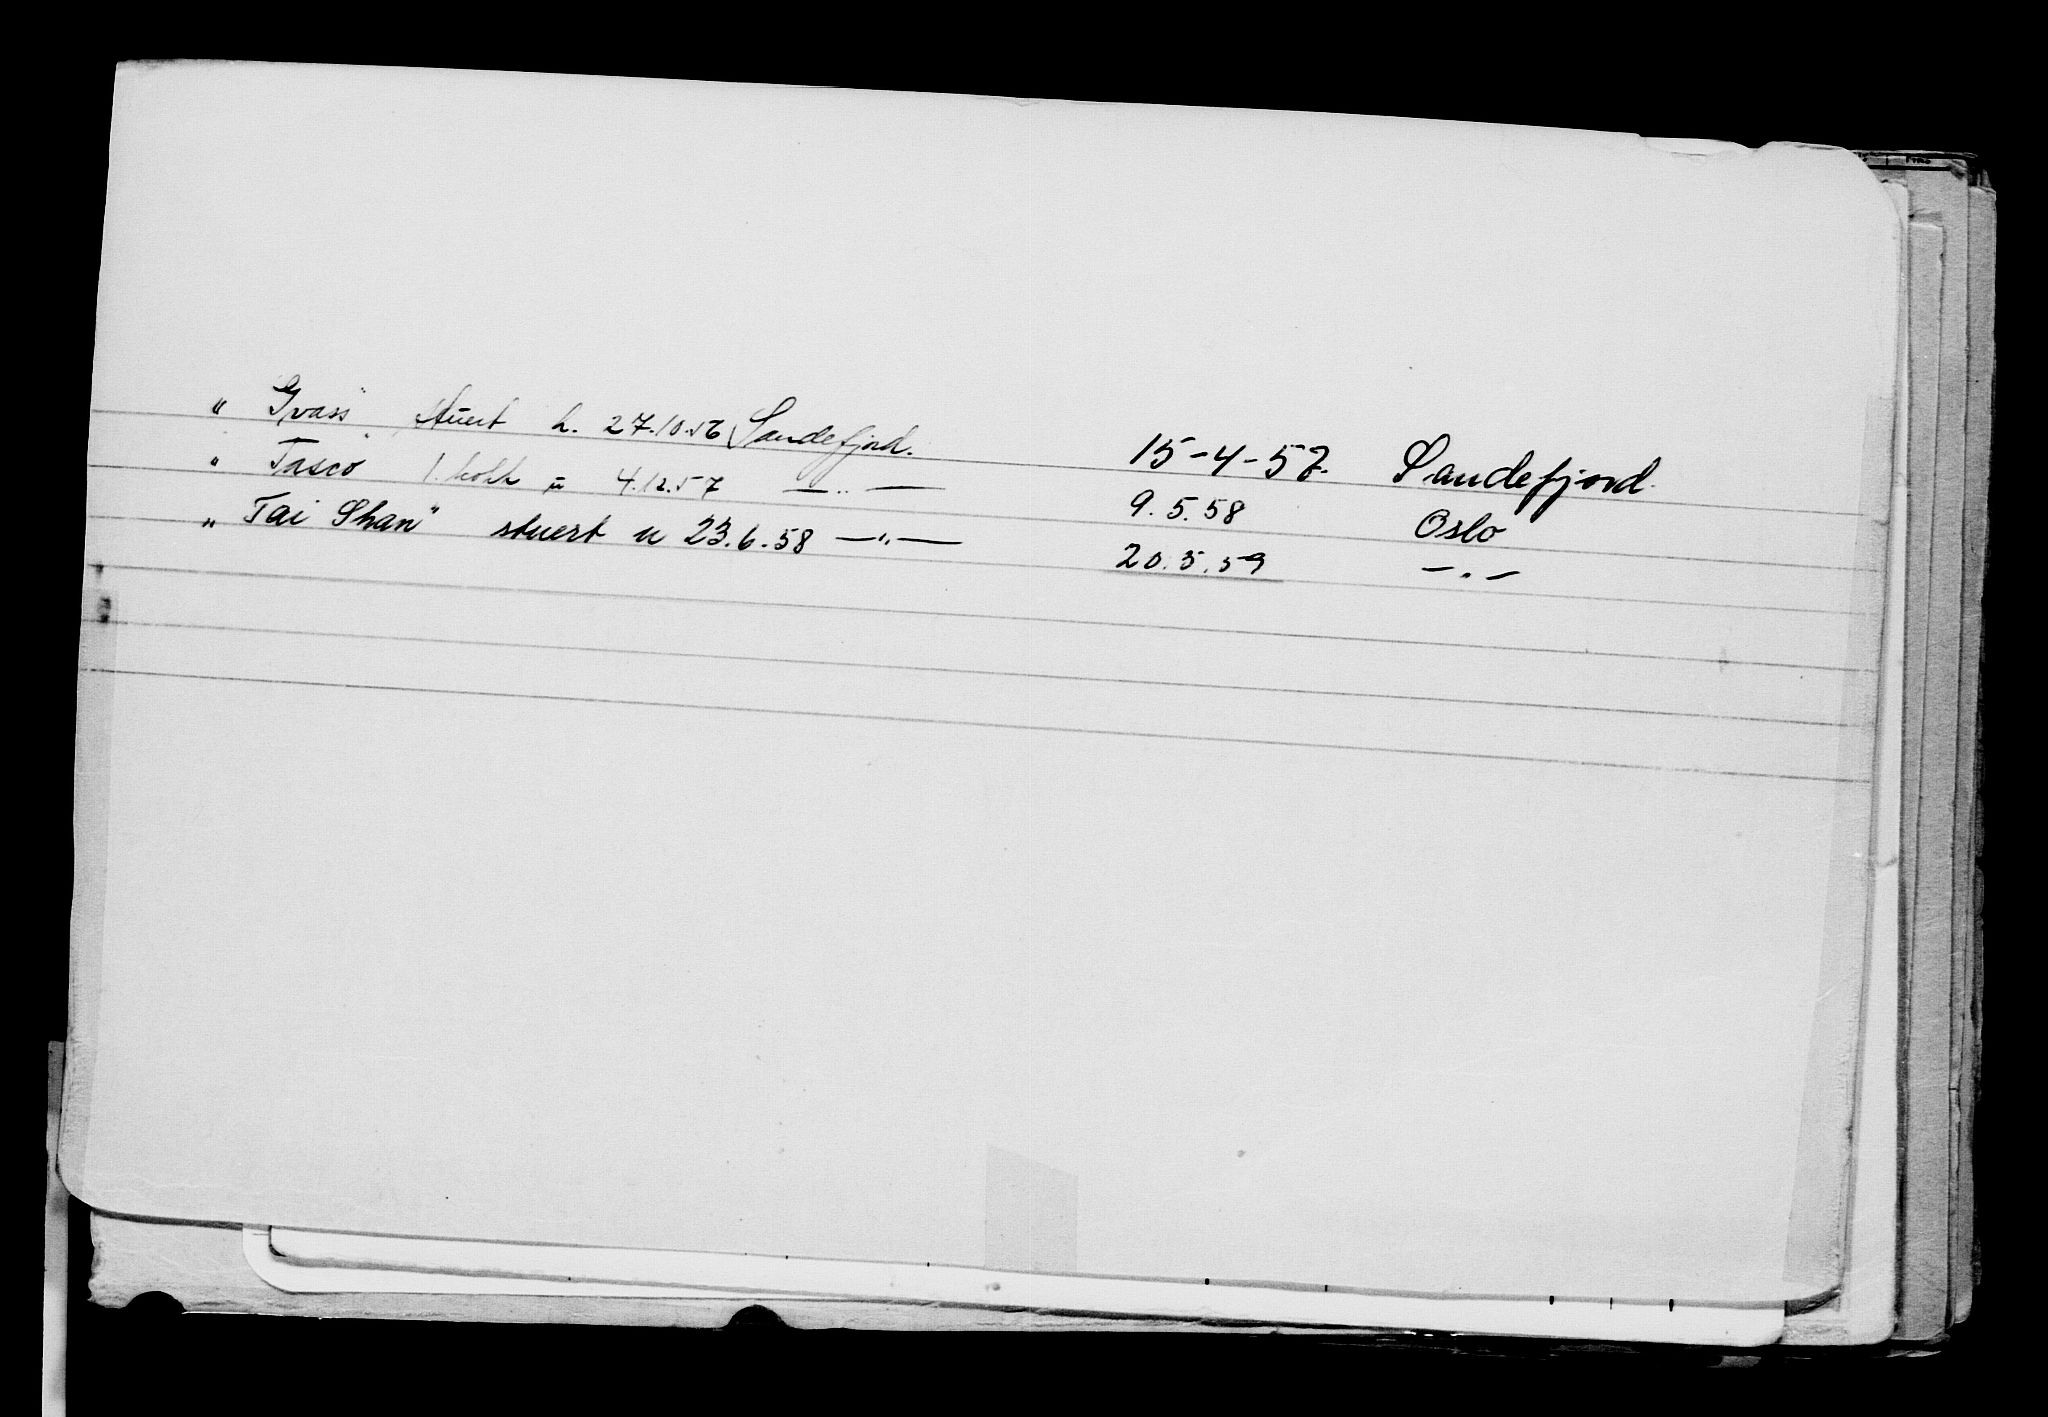 " Gvass" stuert h. 27.10.56 Sandefjord. 15-4-57. Sandefjord.
" Tasco" 1. kokk u 4.12.57 — " — 9.5.58 Oslo
" Tai Shan" stuert u 23.6.58 — " — 20.5.59 — " —